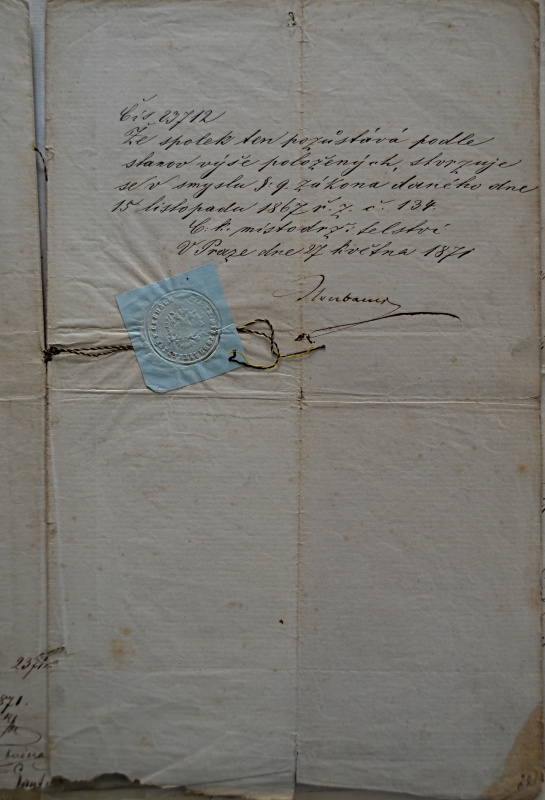 Čís 23712
Že spolek ten pozůstává podle
stanov výše položených, stvrzuje
se v smyslu §. 9. zákona daného dne
15 listopadu 1867 ř. z. č. 134.
C. k. místodrži-telství
V Praze dne 27 května 1871
Neubauer
23712
871.